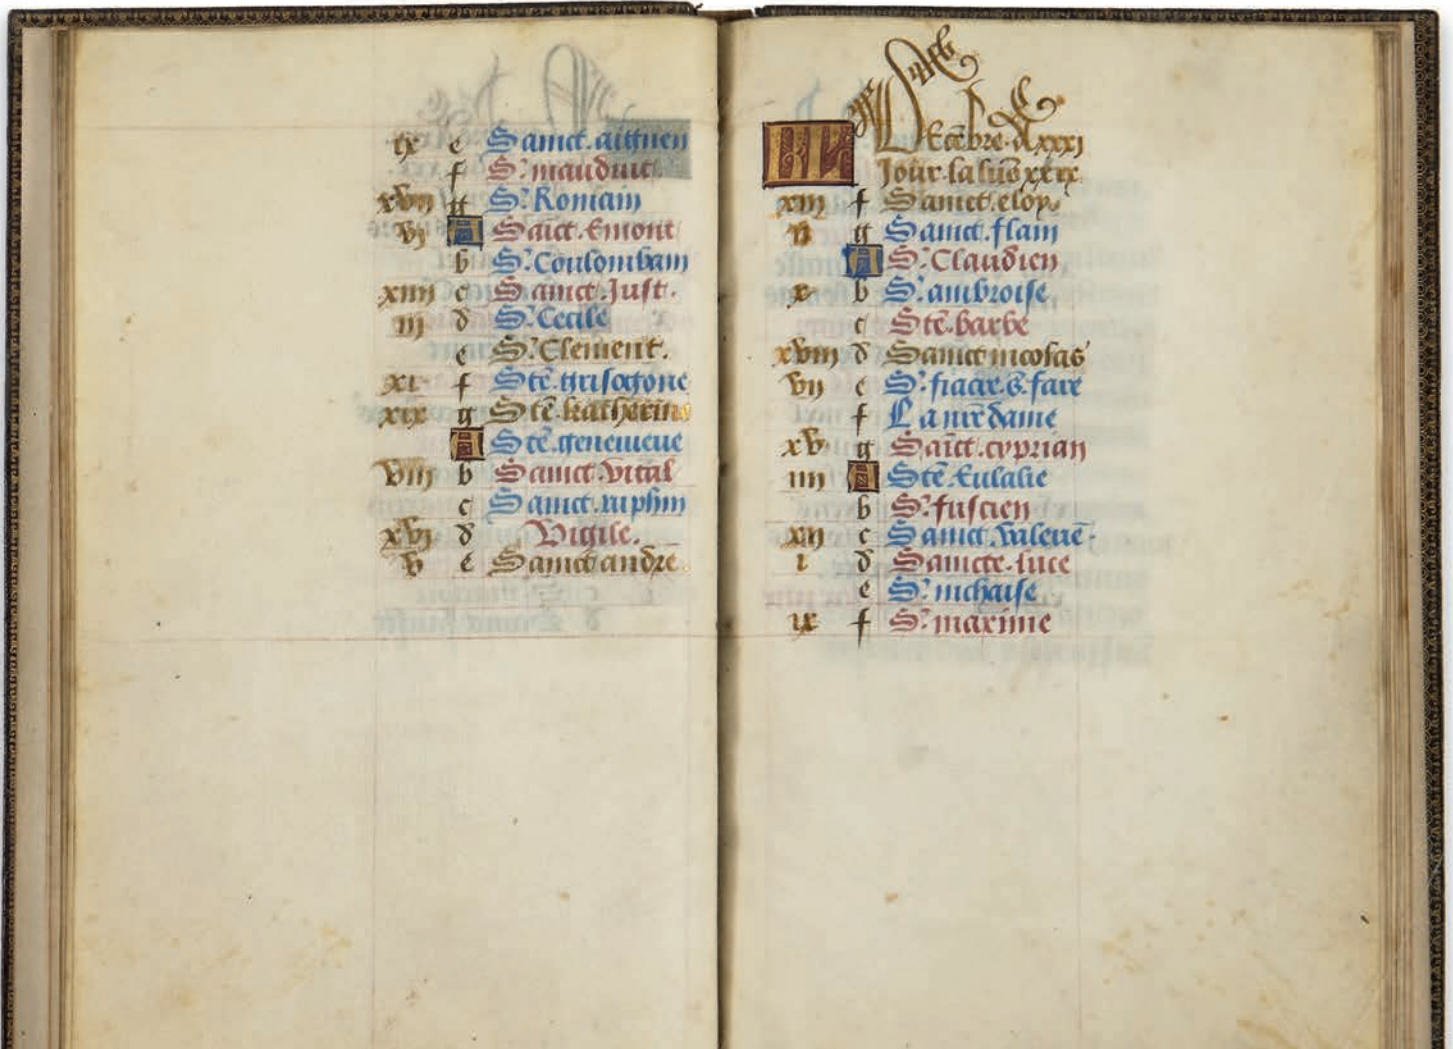 ix e Sainct. aignen
f S. mauduit.
xvii g S. Romain
vi A Saict. Emont
b S. Coulombain
xiiii c Sainct. Just.
iii d S. Cecile
e S. Clement.
xi f Ste. grisogone
xix g Ste. katherine
A Ste. genevieve
viii b Sainct. vital
c Sainct. ruphin
xvi d Vigile.
v e Sainct andre.
KL Decēbre. a. xxxj
Jour. la lune xxix.
xiii f Sainct. eloy.
ii g Sainct. flain
A S. Claudien
x b S. ambroise
c Ste. barbe
xviii d Sainct nicolas
vii e S. fiacre. s. fare
f La nr̄e dame
xv g Saict. cyprian
iiii A Ste. Eulalie
b S. fuscien
xii c Sainct. valerie
i d Saincte. luce
e S. nichaise
ix f S. maxime